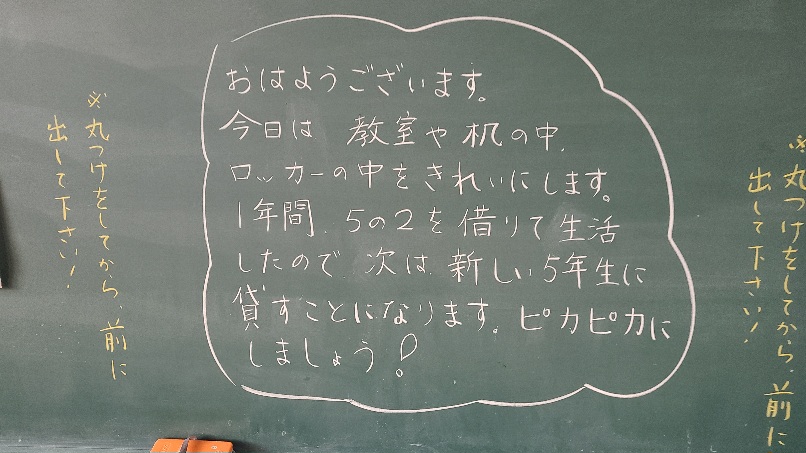 おはようございます。
今日は 教室や机の中、
ロッカーの中をきれいにします。
1年間、5の2を借りて生活
したので 次は 新しい5年生に
貸すことになります。ピカピカに
しましょう!
※丸つけをしてから、前に
出して下さい!
※丸つけをしてから、前に
出して下さい!